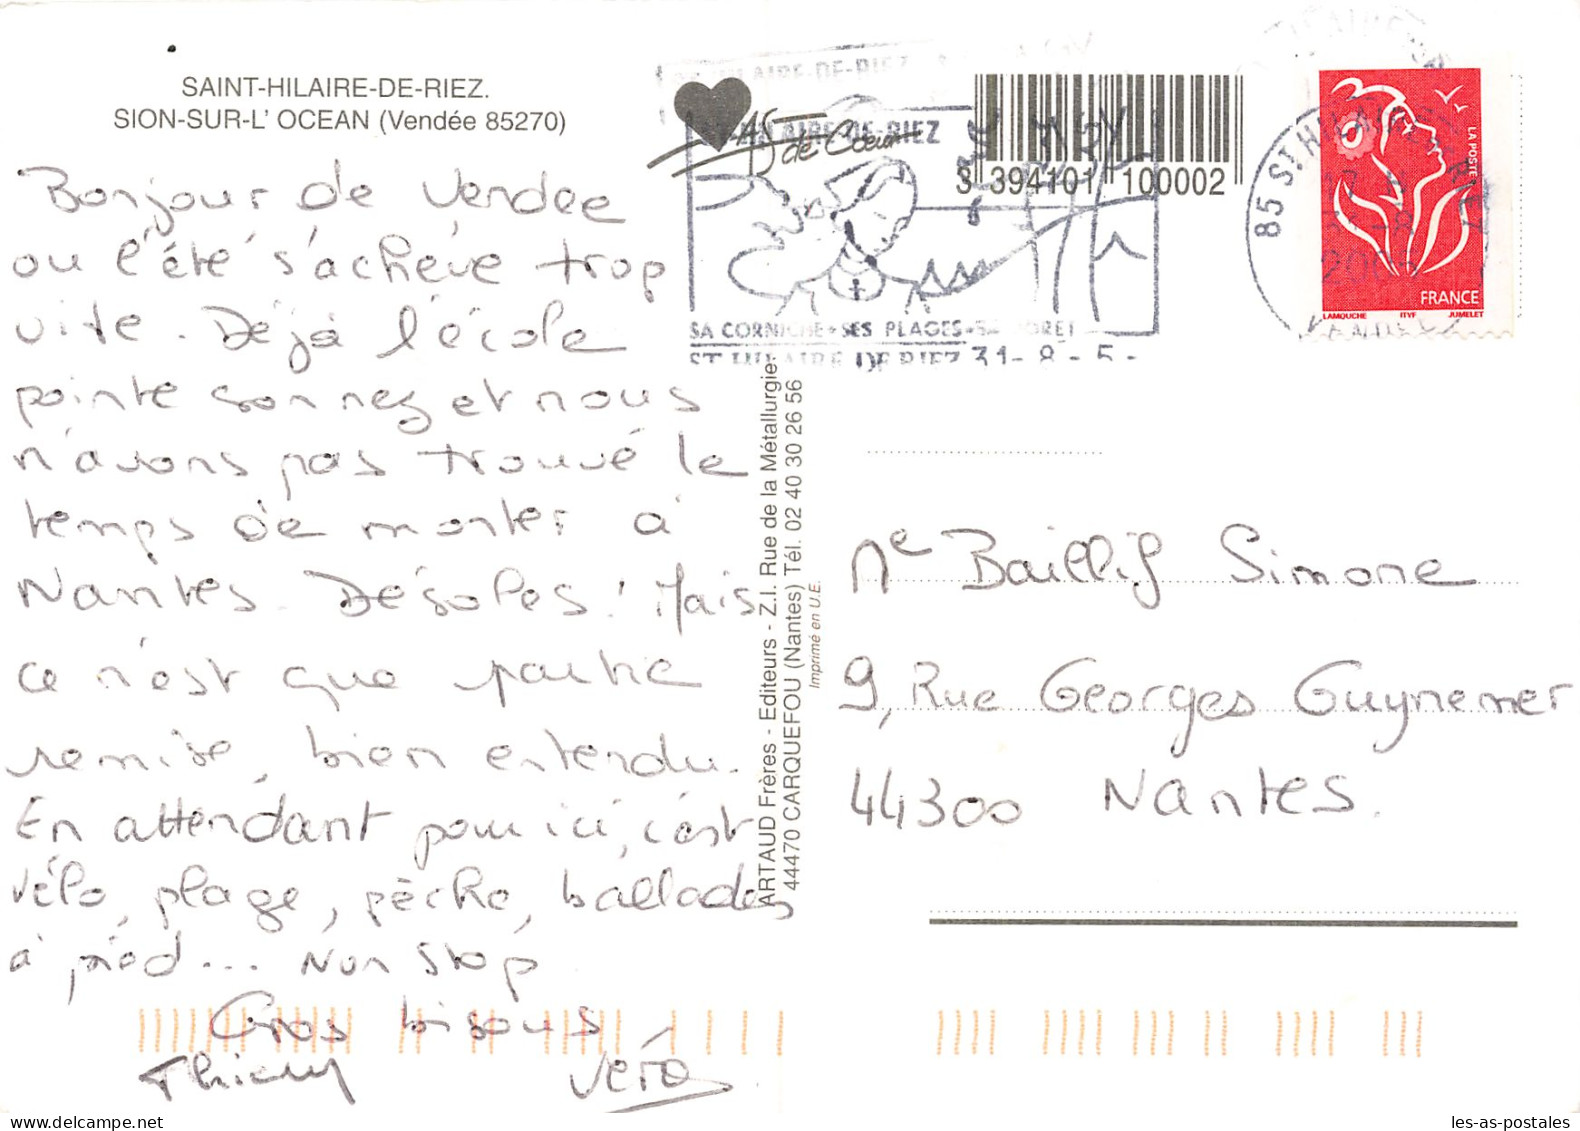 SAINT-HILAIRE-DE-RIEZ.
SION-SUR-L' OCEAN (Vendée 85270)
Bonjour de Vendée
ou l'été s'achève trop
vite. Déjà l'école
pointe son nez et nous
n'avons pas trouvé le
temps de monter à
Nantes. Désolés! Mais
ce n'est que partie
remise, bien entendu.
En attendant pour ici, c'est
vélo, plage, pêche, ballades
à pied... Non Stop
Gros bisous
Thierry Véro
ARTAUD Frères - Editeurs - Z.I. Rue de la Métallurgie
44470 CARQUEFOU (Nantes) Tél. 02 40 30 26 56
Imprimé en U.E.
ST-HILAIRE-DE-RIEZ
As de Coeur
3 394101 100002
SA CORNICHE-SES PLAGES-SA FORET
ST HILAIRE DE RIEZ 31-8-5-
85 ST HILAIRE DE RIEZ
VENDEE
LA POSTE
FRANCE
LAMOUCHE ITVF JUMELET
Me Baillif Simone
9, Rue Georges Guynemer
44300 Nantes.
les-as-postales